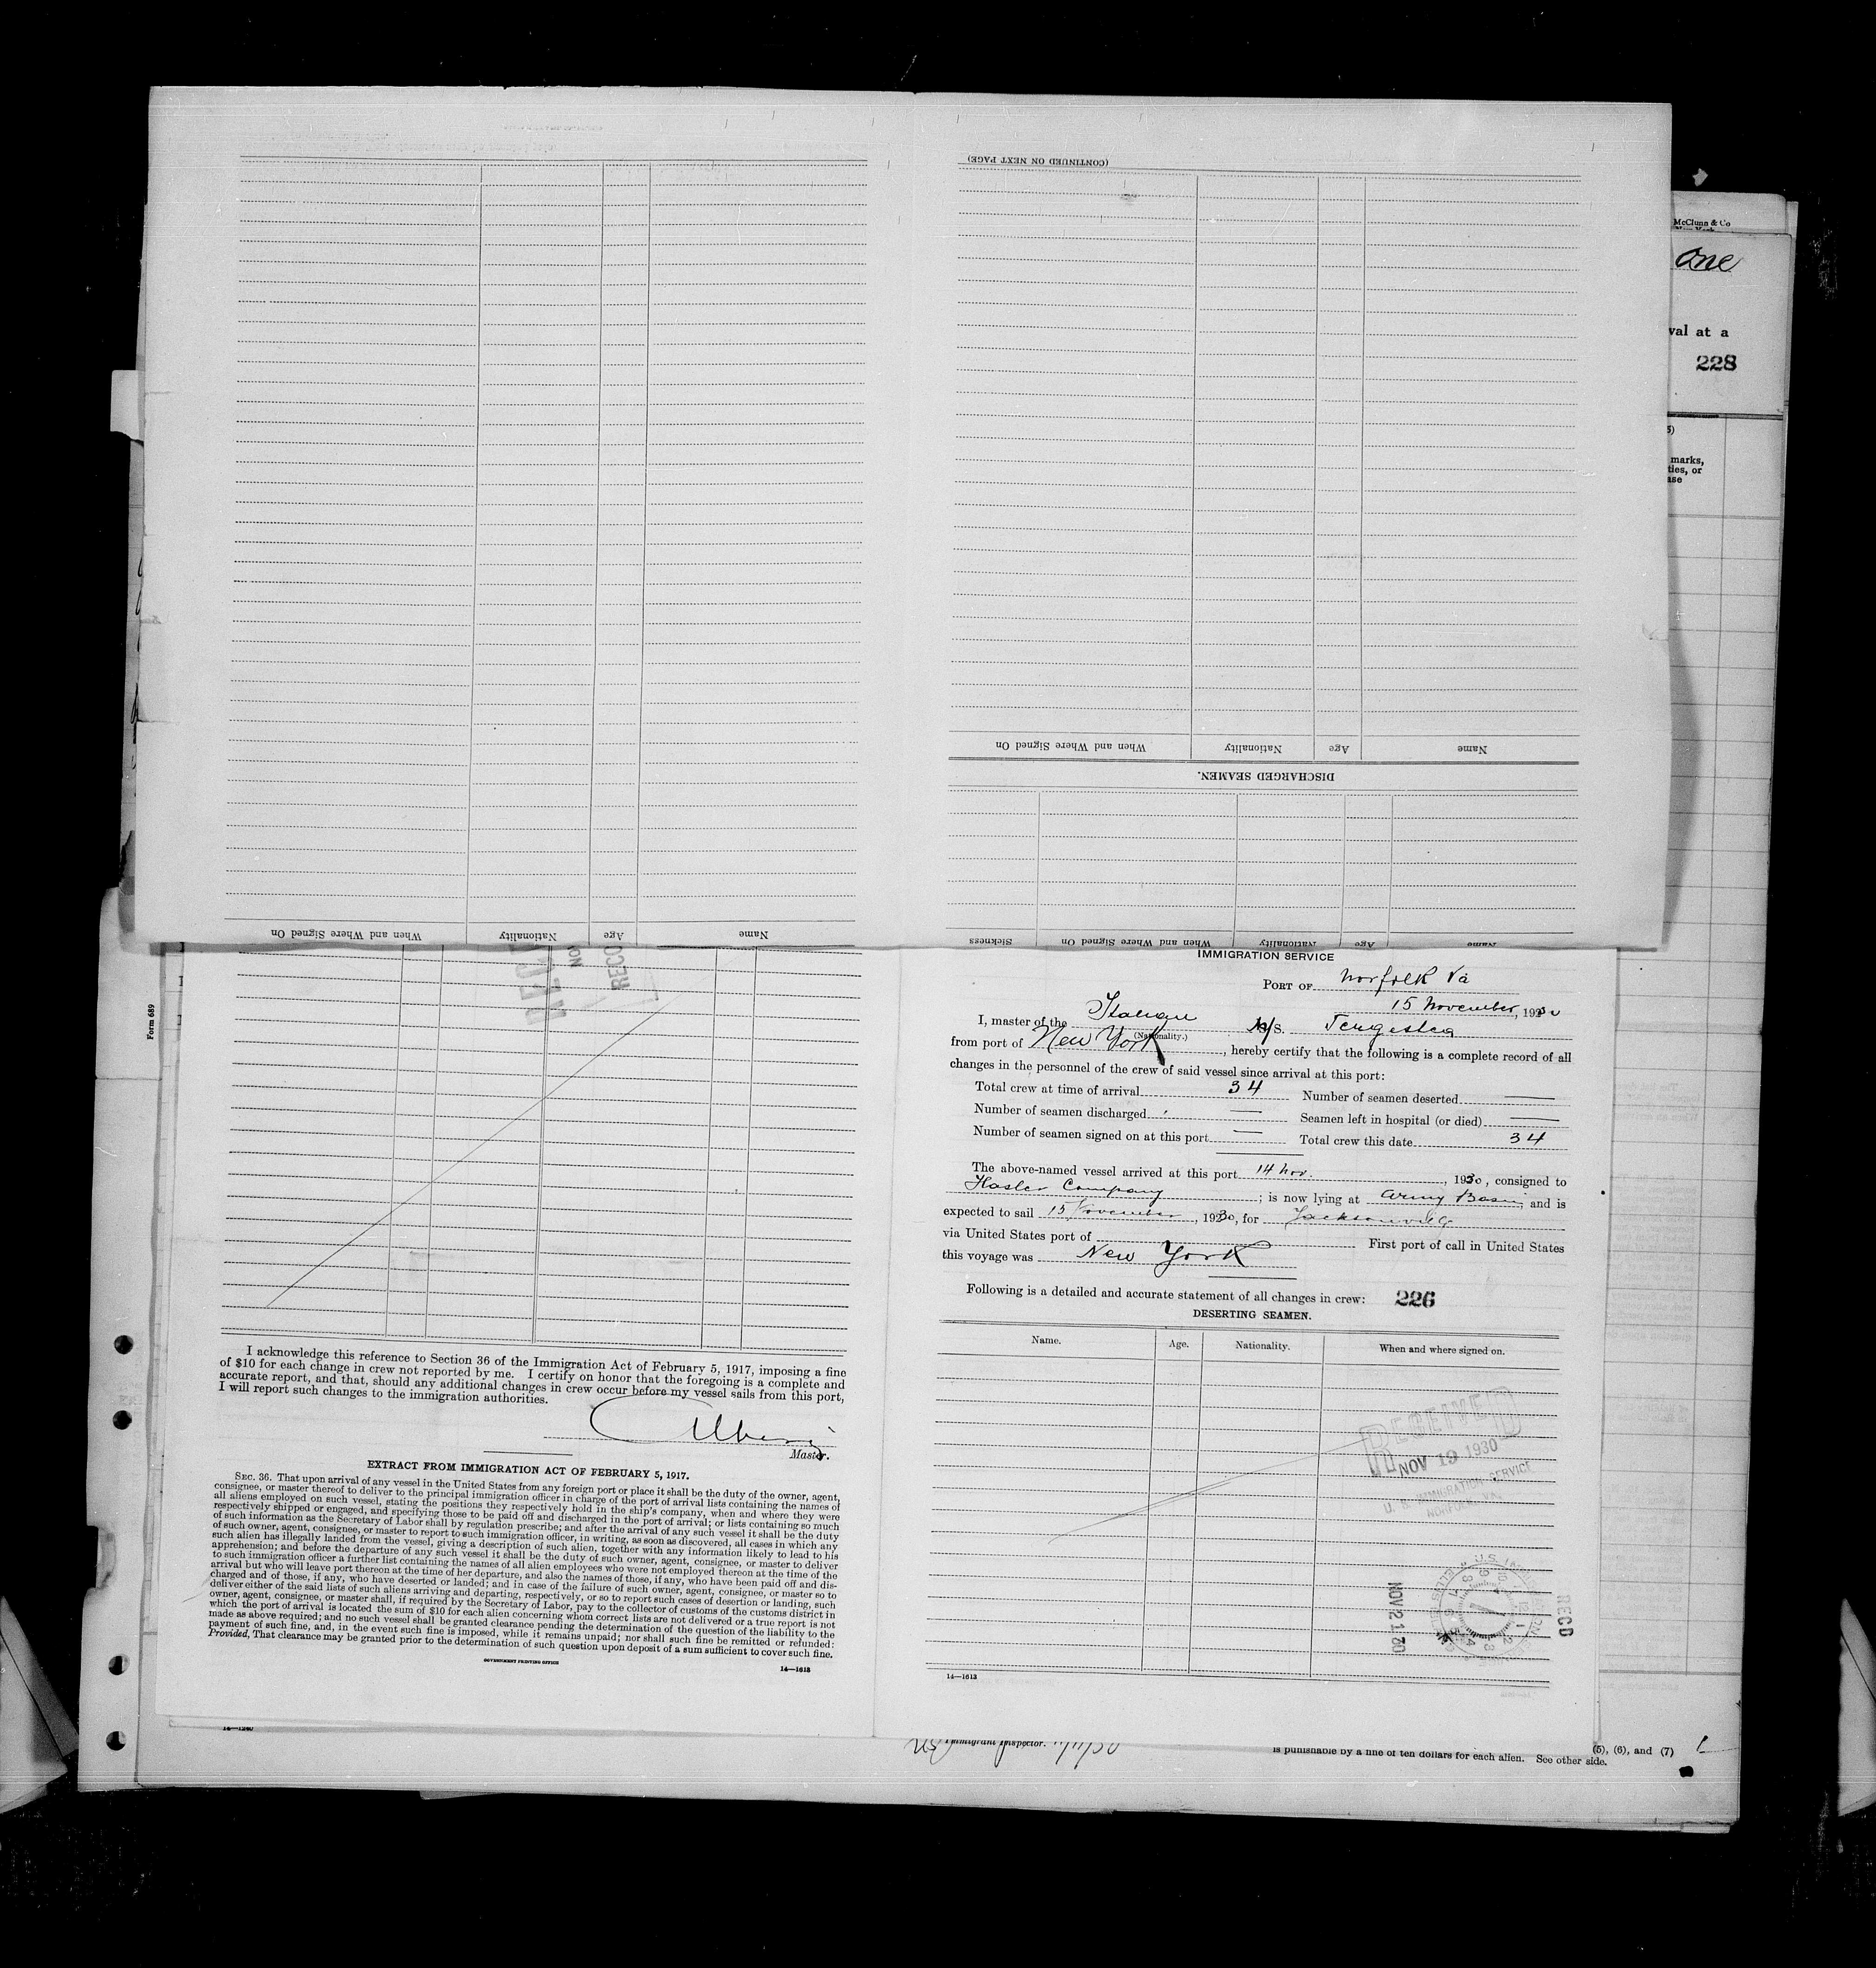 (CONTINUED ON NEXT PAGE)
When and Where Signed On Nationality Age Name
DISCHARGED SEAMEN.
Sickness When and Where Signed On Nationality Age Name
When and Where Signed On Nationality Age Name
McClunn & Co
One
val at a
228
5)
marks,
ties, or
ase
Form 689
NOV
RECD
I acknowledge this reference to Section 36 of the Immigration Act of February 5, 1917, imposing a fine
of $10 for each change in crew not reported by me. I certify on honor that the foregoing is a complete and
accurate report, and that, should any additional changes in crew occur before my vessel sails from this port,
I will report such changes to the immigration authorities.
Master.
EXTRACT FROM IMMIGRATION ACT OF FEBRUARY 5, 1917.
SEC. 36. That upon arrival of any vessel in the United States from any foreign port or place it shall be the duty of the owner, agent,
consignee, or master thereof to deliver to the principal immigration officer in charge of the port of arrival lists containing the names of
all aliens employed on such vessel, stating the positions they respectively hold in the ship's company, when and where they were
respectively shipped or engaged, and specifying those to be paid off and discharged in the port of arrival; or lists containing so much
of such information as the Secretary of Labor shall by regulation prescribe; and after the arrival of any such vessel it shall be the duty
of such owner, agent, consignee, or master to report to such immigration officer, in writing, as soon as discovered, all cases in which any
such alien has illegally landed from the vessel, giving a description of such alien, together with any information likely to lead to his
apprehension; and before the departure of any such vessel it shall be the duty of such owner, agent, consignee, or master to deliver
to such immigration officer a further list containing the names of all alien employees who were not employed thereon at the time of the
arrival but who will leave port thereon at the time of her departure, and also the names of those, if any, who have been paid off and dis-
charged and of those, if any, who have deserted or landed; and in case of the failure of such owner, agent, consignee, or master so to
deliver either of the said lists of such aliens arriving and departing, respectively, or so to report such cases of desertion or landing, such
owner, agent, consignee, or master shall, if required by the Secretary of Labor, pay to the collector of customs of the customs district in
which the port of arrival is located the sum of $10 for each alien concerning whom correct lists are not delivered or a true report is not
made as above required; and no such vessel shall be granted clearance pending the determination of the question of the liability to the
payment of such fine, and, in the event such fine is imposed, while it remains unpaid; nor shall such fine be remitted or refunded:
Provided, That clearance may be granted prior to the determination of such question upon deposit of a sum sufficient to cover such fine.
GOVERNMENT PRINTING OFFICE 14—1613
14—1240
IMMIGRATION SERVICE
PORT OF Norfolk Va
15 November, 1930
I, master of the Italian M/S.
(Nationality.)
from port of New York, hereby certify that the following is a complete record of all
changes in the personnel of the crew of said vessel since arrival at this port:
Total crew at time of arrival 34 Number of seamen deserted —
Number of seamen discharged — Seamen left in hospital (or died) —
Number of seamen signed on at this port — Total crew this date 34
The above-named vessel arrived at this port 14 Nov., 1930, consigned to
Hasler Company; is now lying at Army Basin, and is
expected to sail 15 November, 1930, for Jacksonville
via United States port of — First port of call in United States
this voyage was New York
Following is a detailed and accurate statement of all changes in crew: 226
DESERTING SEAMEN.
Name. Age. Nationality. When and where signed on.
RECEIVED
NOV 19 1930
U. S. IMMIGRATION SERVICE
NORFOLK, VA.
NOV 21 30
RECD
14—1613
Immigrant Inspector.
is punishable by a fine of ten dollars for each alien. See other side.
(5), (6), and (7)